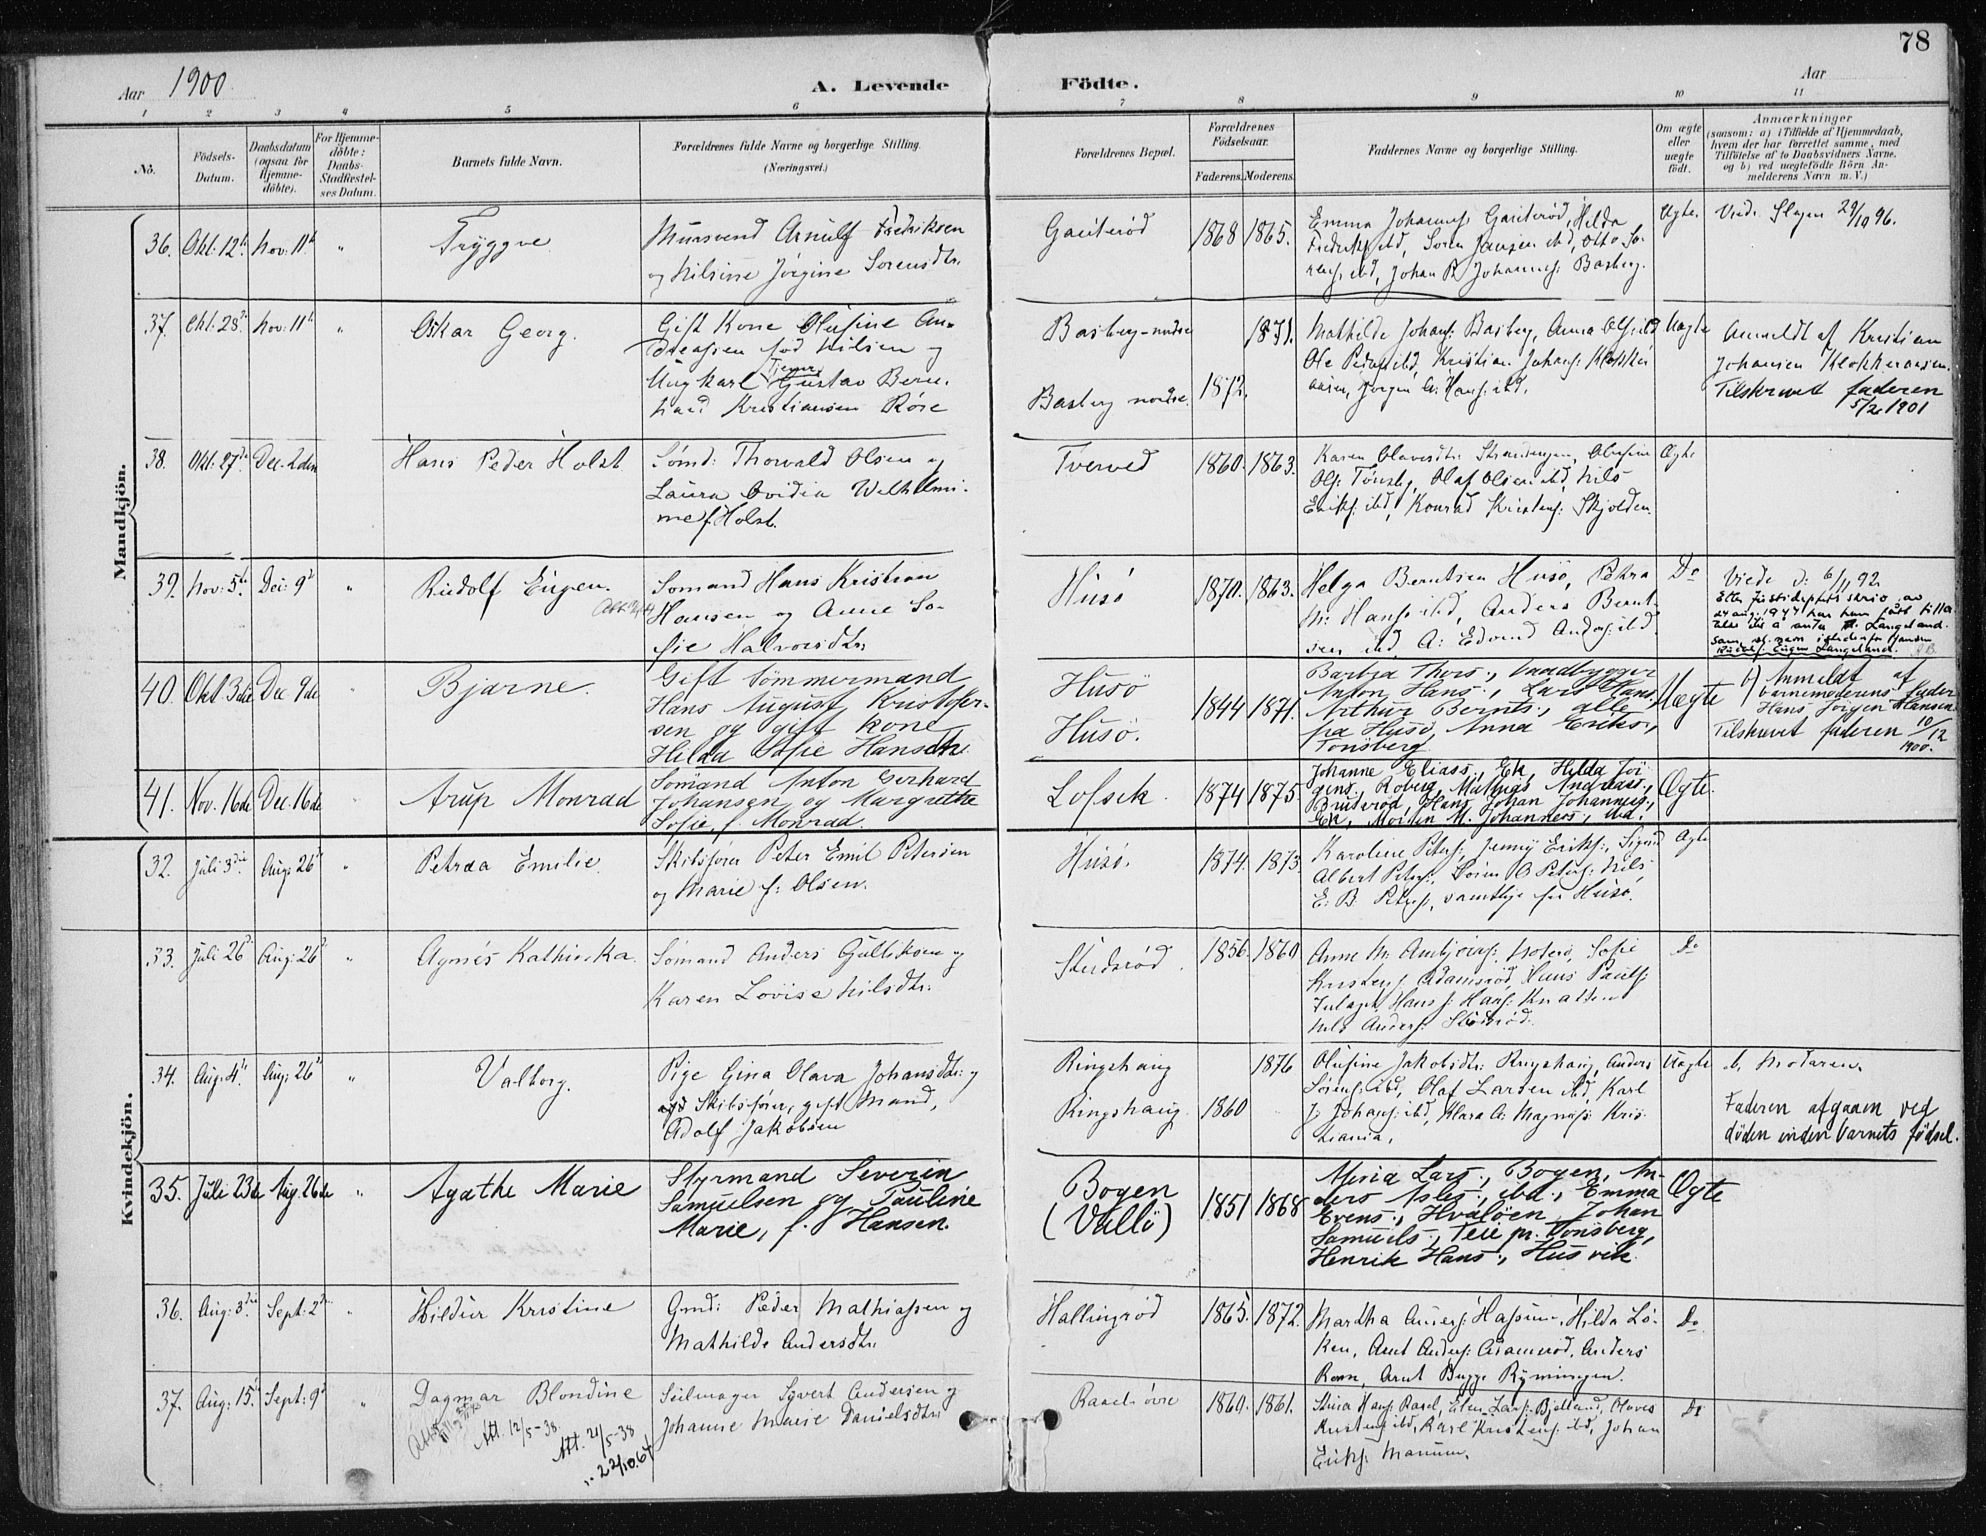 78
Aar 1900.
A. Levende Födte.
Aar
1 2 3 4 5 6 7 8 9 10 11
No.
Födsels-Datum.
Daabsdatum (ogsaa for Hjemmedöbte).
For Hjemmedöbte: Daabs-Stadfæstelses Datum.
Barnets fulde Navn.
Forældrenes fulde Navne og borgerlige Stilling.
(Næringsvei.)
Forældrenes Bopæl.
Forældrenes Födselsaar.
Faderens. Moderens.
Faddernes Navne og borgerlige Stilling.
Om ægte eller uægte födt.
Anmærkninger
(saasom: a) i Tilfælde af Hjemmedaab, hvem der har forrettet samme, med Tilföielse af to Daabsvidners Navne, og b) ved uægtefödte Börn Anmelderens Navn m. V.)
Mandkjön.
36. Okt: 12te Nov: 11te " Tryggve Mursvend Arnulf Fredriksen
og Nilsine Jørgine Sorensdtr. Gauterød 1868 1865.
Emma Johannes: Gauterød, Hilda
Fredriks: ibd, Soren Jansen ibd, Otto So-
rens: ibd, Johan R. Johannes: Basberg.
Ægte. Viede Slagen 29/10 96.
37. Okt: 28de Nov: 11te " Oskar Georg. Gift Kone Olufine An-
dreassen fød Nilsen og
Ungkarl Tjener Gustav Bern-
hard Kristiansen Røse
Basberg-nordre 1871.
Basberg nordre. 1872.
Mathilde Johans: Basberg, Anna Ols: ibd
Ole Peders: ibd, Kristian Johans: Klopper
aasen, Jørgen A: Hans: ibd.
Uægte Anmeldt af Kristian
Johansen Klopperaasen.
Tilskrevet faderen
5/2 1901
38. Okt: 27de Dec. 2den Hans Peder Holst Sømd: Thorvald Olsen og
Laura Ovidia Wilhelmi-
ne f. Holst. Tverved 1860. 1863.
Karen Olavesdtr: Strandengen, Olufine
Ols: Tønsbg, Olaf Olsen ibd, Nils
Eriks: ibd, Konrad Kristens: Skjolden.
Ægte
39. Nov: 5te Dec: 9de " Rudolf Eugen. Sømand Hans Kristian
Hansen og Anne So-
fie Halvorsdtr: Husø 1870. 1863.
Helga Berntsen Husø, Petra
M: Hans: ibd, Anders Bernt-
sen ibd, A: Edvard Anders: ibd.
Do Viede d: 6/11 92
Etter Justisdep. skriv av
24 aug. 1944 har han fått tilla-
telse til å anta Langeland
som sl. navn istedenfor Hansen
Rudolf Eugen Langeland.
40. Okt. 3die Dec 9de " Bjarne. Gift Tömmermand
Hans August Kristofer-
sen og gift kone
Hilda Sofie Hansen. Husö
Husö. 1844 1871.
Barbra Thors., Vandbygger
Anton Hans., Lars Hans.
Arthur Bernts., alle
fra Husö, Anna Eriks.,
Tönsberg
Uægte b) Anmeldt af
barnemoderens fader
Hans Jörgen Hansen.
Tilskrevet faderen 10/12
1900.
41. Nov. 16de Dec. 16de " Arup Monrad Sömand Anton Gerhard
Johansen og Margrethe
Sofie f. Monrad. Lofsek. 1874 1875
Johanne Elias., Ek, Hilda Jör
gens., Roberg, Mathias Andreas.,
Bruserød, Hans Johan Johannes.,
Ek, Morten M. Johannes., ibd.
Ægte.
Kvindekjön.
32. Juli 3die Aug: 26de " Petraa Emilie. Skibsfører Peter Emil Petersen
og Marie f: Olsen. Husø. 1874. 1873.
Karoline Peters:, Jenny Eriks:, Sigurd
Albert Peters:, Søren O Peters: Nils
E: B: Peters:, samtlige fra Husø.
Ægte
33. Juli 26de Aug: 26de " Agnes Kathinka. Sømand Anders Gulliksen og
Karen Lovise Nilsdtr: Stidsrød. 1856. 1860
Anne M. Ambjørns:, Sofie
Kristens: Adamsrød, Hans Pauls:
Hans J: Hans: Knatten
Nils Anders:
Do
34. Aug: 4de Aug: 26de " Valborg. Pige Gina Olava Johansdtr: og
Skibsfører, gift Mand,
Adolf Jakobsen Ringshaug 1876
Ringshaug. 1860
Olufine Jakobsdtr: Ringshaug, Anders
Sørens: ibd, Olaf Larsen ibd, Karl
J. Johans: ibd, Klara A: Magnus: Kris-
tiania,
Uægte b, Moderen.
Faderen afgaaen ved
döden inden barnets födsel.
35. Juli 23de Aug. 26de " Agathe Marie Styrmand Severin
Samuelsen og Pauline
Marie, f. Hansen. Bogen
(Vallö) 1851 1868
Mina Lars., Bogen, An-
ders Asles., ibd., Emma
Evens., Hvalöen, Johan
Samuels., Teie pr. Tönsberg,
Henrik Hans., Husvik.
Ægte
36. Aug: 3die Sept: 2den " Hildur Kristine Gmd: Peder Mathiassen og
Mathilde Andersdtr: Hallingrød 1865. 1872.
Martha Anders: Hassum, Hilda Lø-
ken, Arnt Anders: Adamsrød, Anders
Roen, Arnt Bugge Rynningen.
Do
37. Aug: 15de Sept: 9de " Dagmar Blondine Seilmager Syvert Andersen og
Johanne Marie Danielsdtr: Rasel øvre 1860. 1861.
Stina Hans: Rasel, Elen Lars: Bjelland, Olaves
Kristens: ibd, Karl Kristens: ibd, Johan
Eriks: Marum.
Do
Att. 12/5-38.
Att. 21/5-38
"-22/10.64